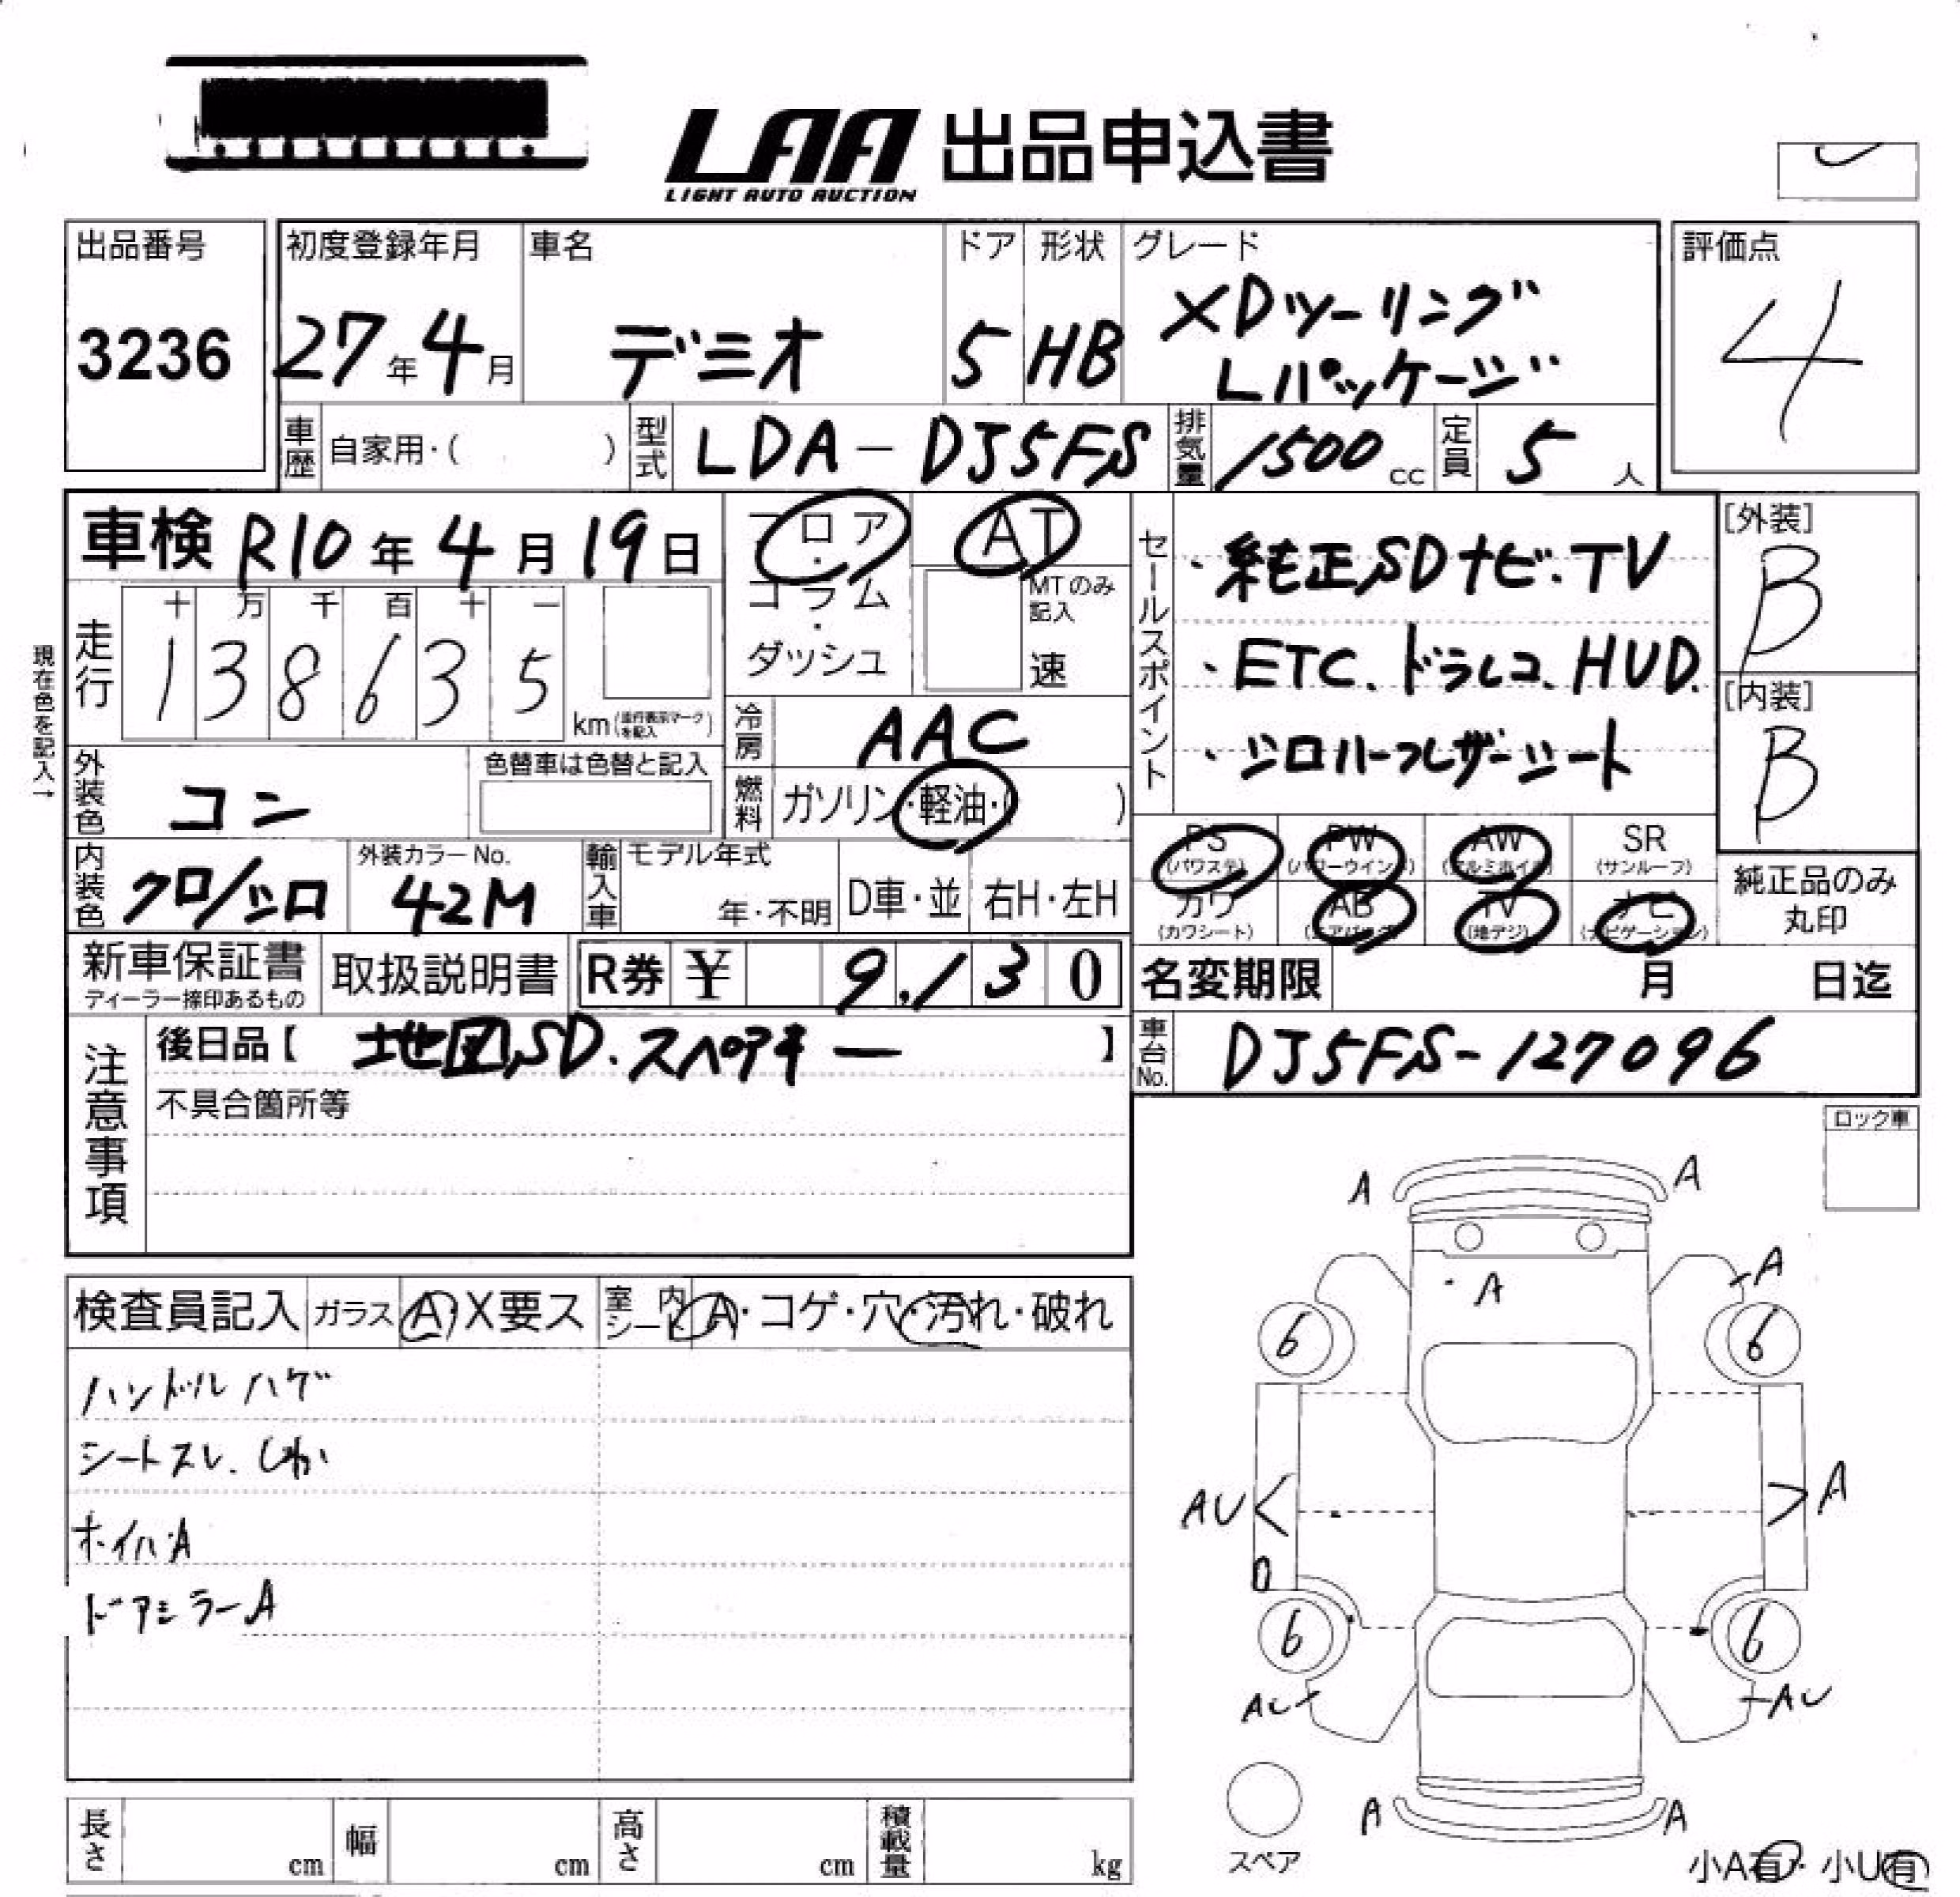 LAA 出品申込書
LIGHT AUTO AUCTION
出品番号
3236
初度登録年月
27年4月
車名
デミオ
ドア
5
形状
HB
グレード
XDツーリング
Lパッケージ
評価点
4
車歴
自家用・( )
型式
LDA-DJ5FS
排気量
1500 cc
定員
5人
車検 R10年4月19日
フロア・コラム・ダッシュ
AT
MTのみ記入
速
セールスポイント
・純正SDナビ.TV
・ETC.ドラレコ.HUD.
・シロハーフレザーシート
[外装]
B
[内装]
B
現在色を記入→
走行
十万千百十一
138635
km(走行表示マークを記入)
冷房
AAC
燃料
ガソリン・軽油・( )
外装色
コン
色替車は色替と記入
内装色
クロ/シロ
外装カラーNo.
42M
輸入車
モデル年式
年・不明
D車・並
右H・左H
PS
(パワステ)
PW
(パワーウインド)
AW
(アルミホイル)
SR
(サンルーフ)
カワ
(カワシート)
AB
(エアバッグ)
TV
(地デジ)
ナビ
(ナビゲーション)
純正品のみ
丸印
新車保証書
ディーラー捺印あるもの
取扱説明書
R券 ¥ 9,130
名変期限 月 日迄
注意事項
後日品【 地図SD.スペアキー 】
不具合箇所等
車台No.
DJ5FS-127096
ロック車
検査員記入
ガラス A・X要ス
室内シート A・コゲ・穴・汚れ・破れ
ハンドルハゲ
シートスレ.しわ
ホイルA
ドアミラーA
A A
A
A
6 6
AU A
6 6
AU AU
A A
スペア
小A有・小U有
長さ cm
幅 cm
高さ cm
積載量 kg